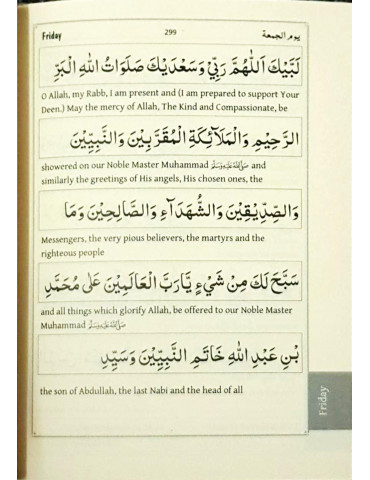 Friday 299 يوم الجمعة
لَبَّيْكَ اَللّٰهُمَّ رَبِّيْ وَسَعْدَيْكَ صَلَوَاتُ اللهِ الْبَرِّ
O Allah, my Rabb, I am present and (I am prepared to support Your
Deen.) May the mercy of Allah, The Kind and Compassionate, be
الرَّحِيْمِ وَالْمَلَآئِكَةِ الْمُقَرَّبِيْنَ وَالنَّبِيِّيْنَ
showered on our Noble Master Muhammad ﷺ and
similarly the greetings of His angels, His chosen ones, the
وَالصِّدِّيْقِيْنَ وَالشُّهَدَآءِ وَالصَّالِحِيْنَ وَمَا
Messengers, the very pious believers, the martyrs and the
righteous people
سَبَّحَ لَكَ مِنْ شَيْءٍ يَّارَبَّ الْعَالَمِيْنَ عَلٰى مُحَمَّدِ
and all things which glorify Allah, be offered to our Noble Master
Muhammad ﷺ
بْنِ عَبْدِ اللهِ خَاتَمِ النَّبِيِّيْنَ وَسَيِّدِ
the son of Abdullah, the last Nabi and the head of all
Friday